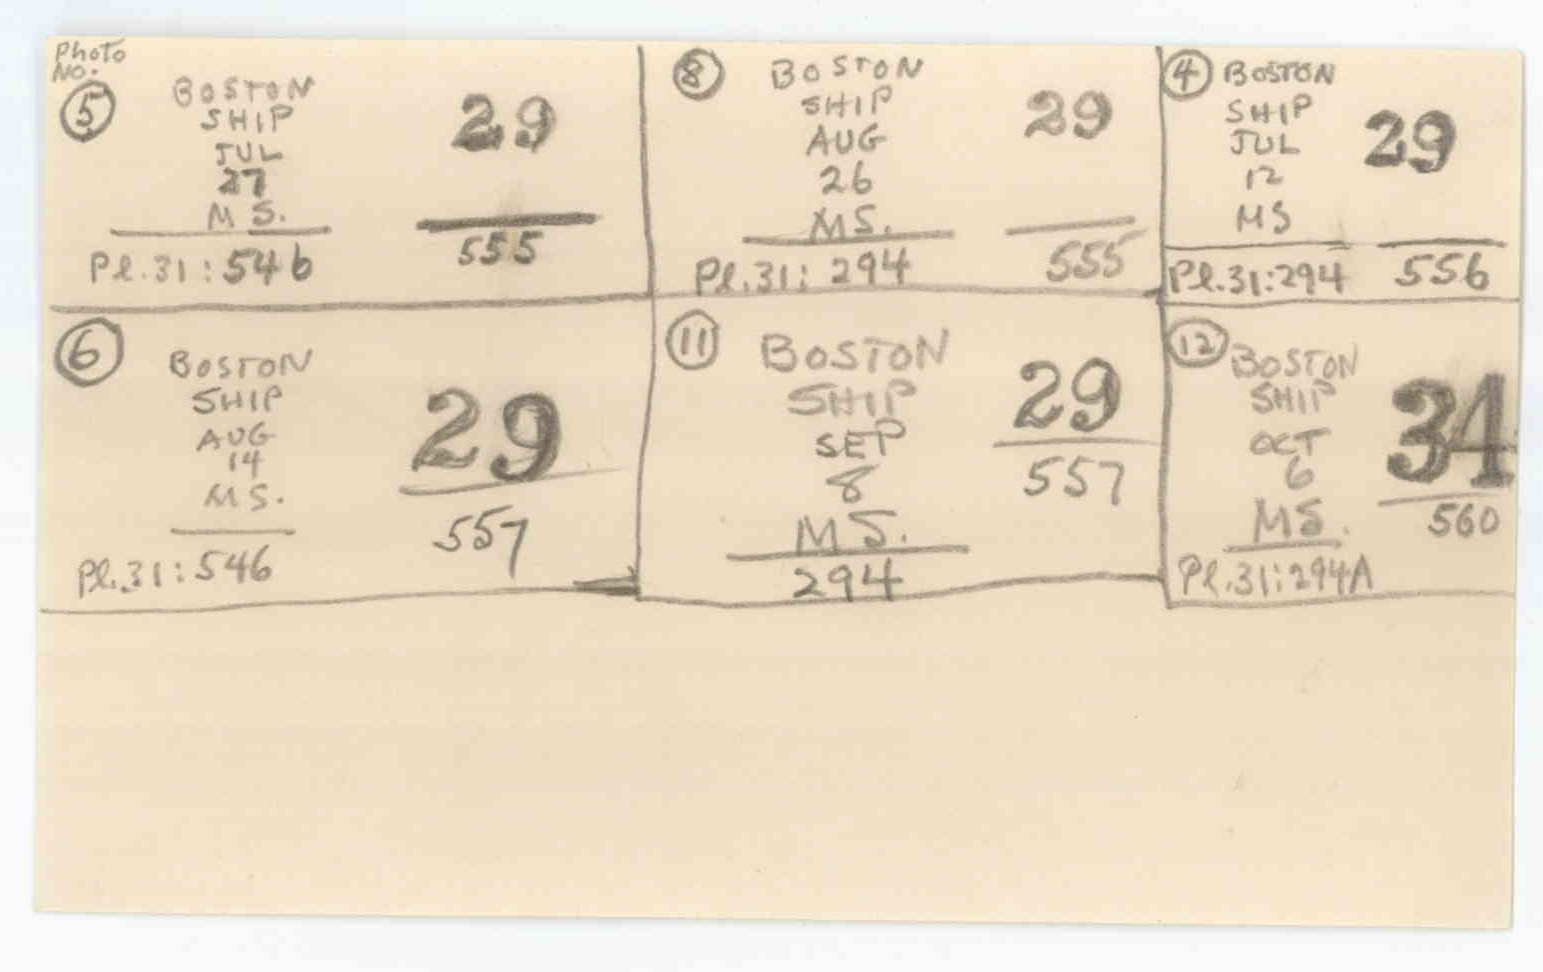 Photo
No.
5
BOSTON
SHIP
JUL
27
MS.
Pl.31:546
29
555
8
BOSTON
SHIP
AUG
26
MS.
Pl.31:294
29
555
4
BOSTON
SHIP
JUL
12
MS
Pl.31:294
29
556
6
BOSTON
SHIP
AUG
14
MS.
Pl.31:546
29
557
11
BOSTON
SHIP
SEP
8
MS.
294
29
557
12
BOSTON
SHIP
OCT
6
MS.
Pl.31:294A
34
560